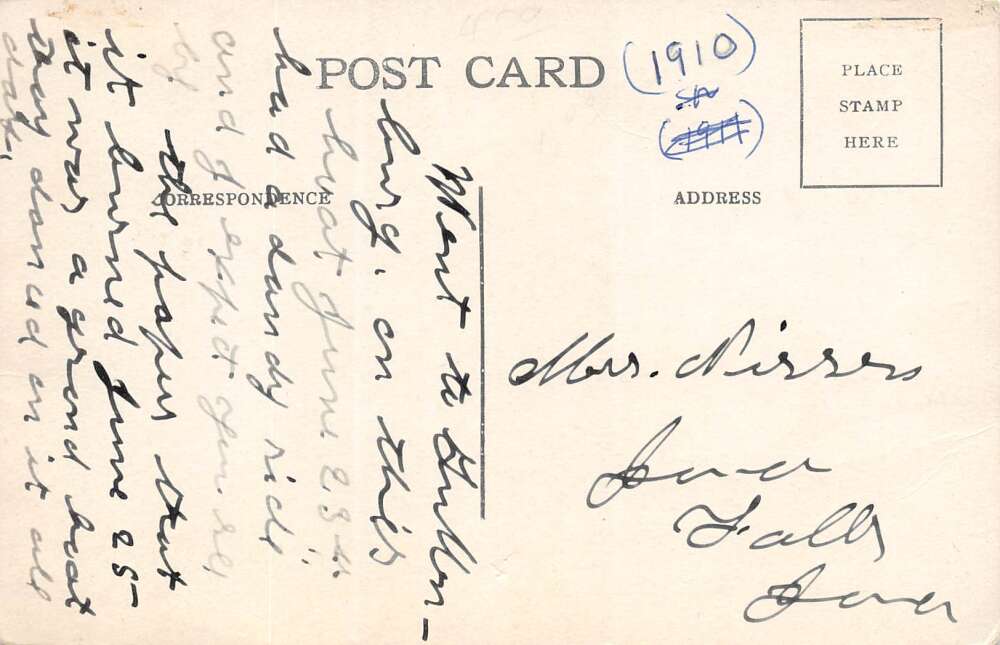 POST CARD
(1910)
(1911)
PLACE
STAMP
HERE
CORRESPONDENCE
ADDRESS
Went to Gutten-
burg. on this
boat June 23
had a dandy ride
and I expect you see
by the paper that
it burned June 25-
it was a grand boat
they danced on it all
day.
Mrs. Nissen
Iowa
Falls
Iowa